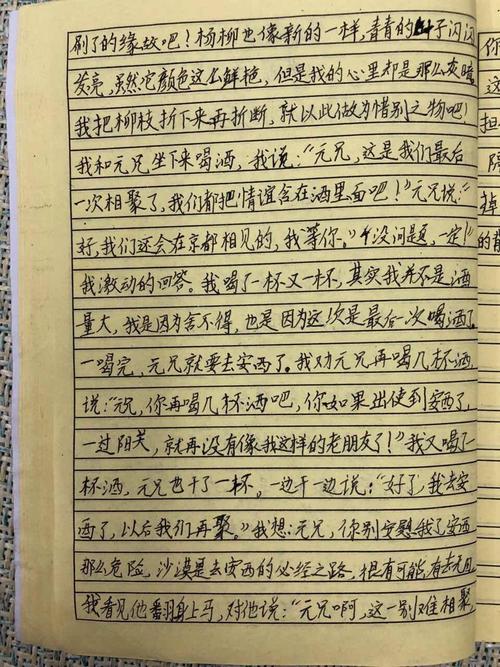 刷了的缘故吧！杨柳也像新的一样，青青的叶子闪闪
发亮，虽然它颜色这么鲜艳，但是我的心里却是那么灰暗
我把柳枝折下来再折断，就以此做为惜别之物吧！
我和元兄坐下来喝酒，我说：“元兄，这是我们最后
一次相聚了，我们都把情谊含在酒里面吧！”元兄说：“
好，我们还会在京都相见的，我等你。”“没问题，一定！”
我激动的回答。我喝了一杯又一杯，其实我并不是酒
量大，我是因为舍不得，也是因为这次是最后一次喝酒了。
一喝完，元兄就要去安西了。我劝元兄再喝几杯酒，
说：“元兄，你再喝几杯酒吧，你如果出使到安西了，
一过阳关，就再没有像我这样的老朋友了！”我又喝了一
杯酒，元兄也干了一杯。一边干一边说：“好了，我去安
西了，以后我们再聚。”我想：元兄，你别安慰我了，安西
那么危险，沙漠是去安西的必经之路，很有可能有去无回
我看见他翻身上马，对他说：“元兄啊，这一别难相聚
你
这
担
隔
掉
的